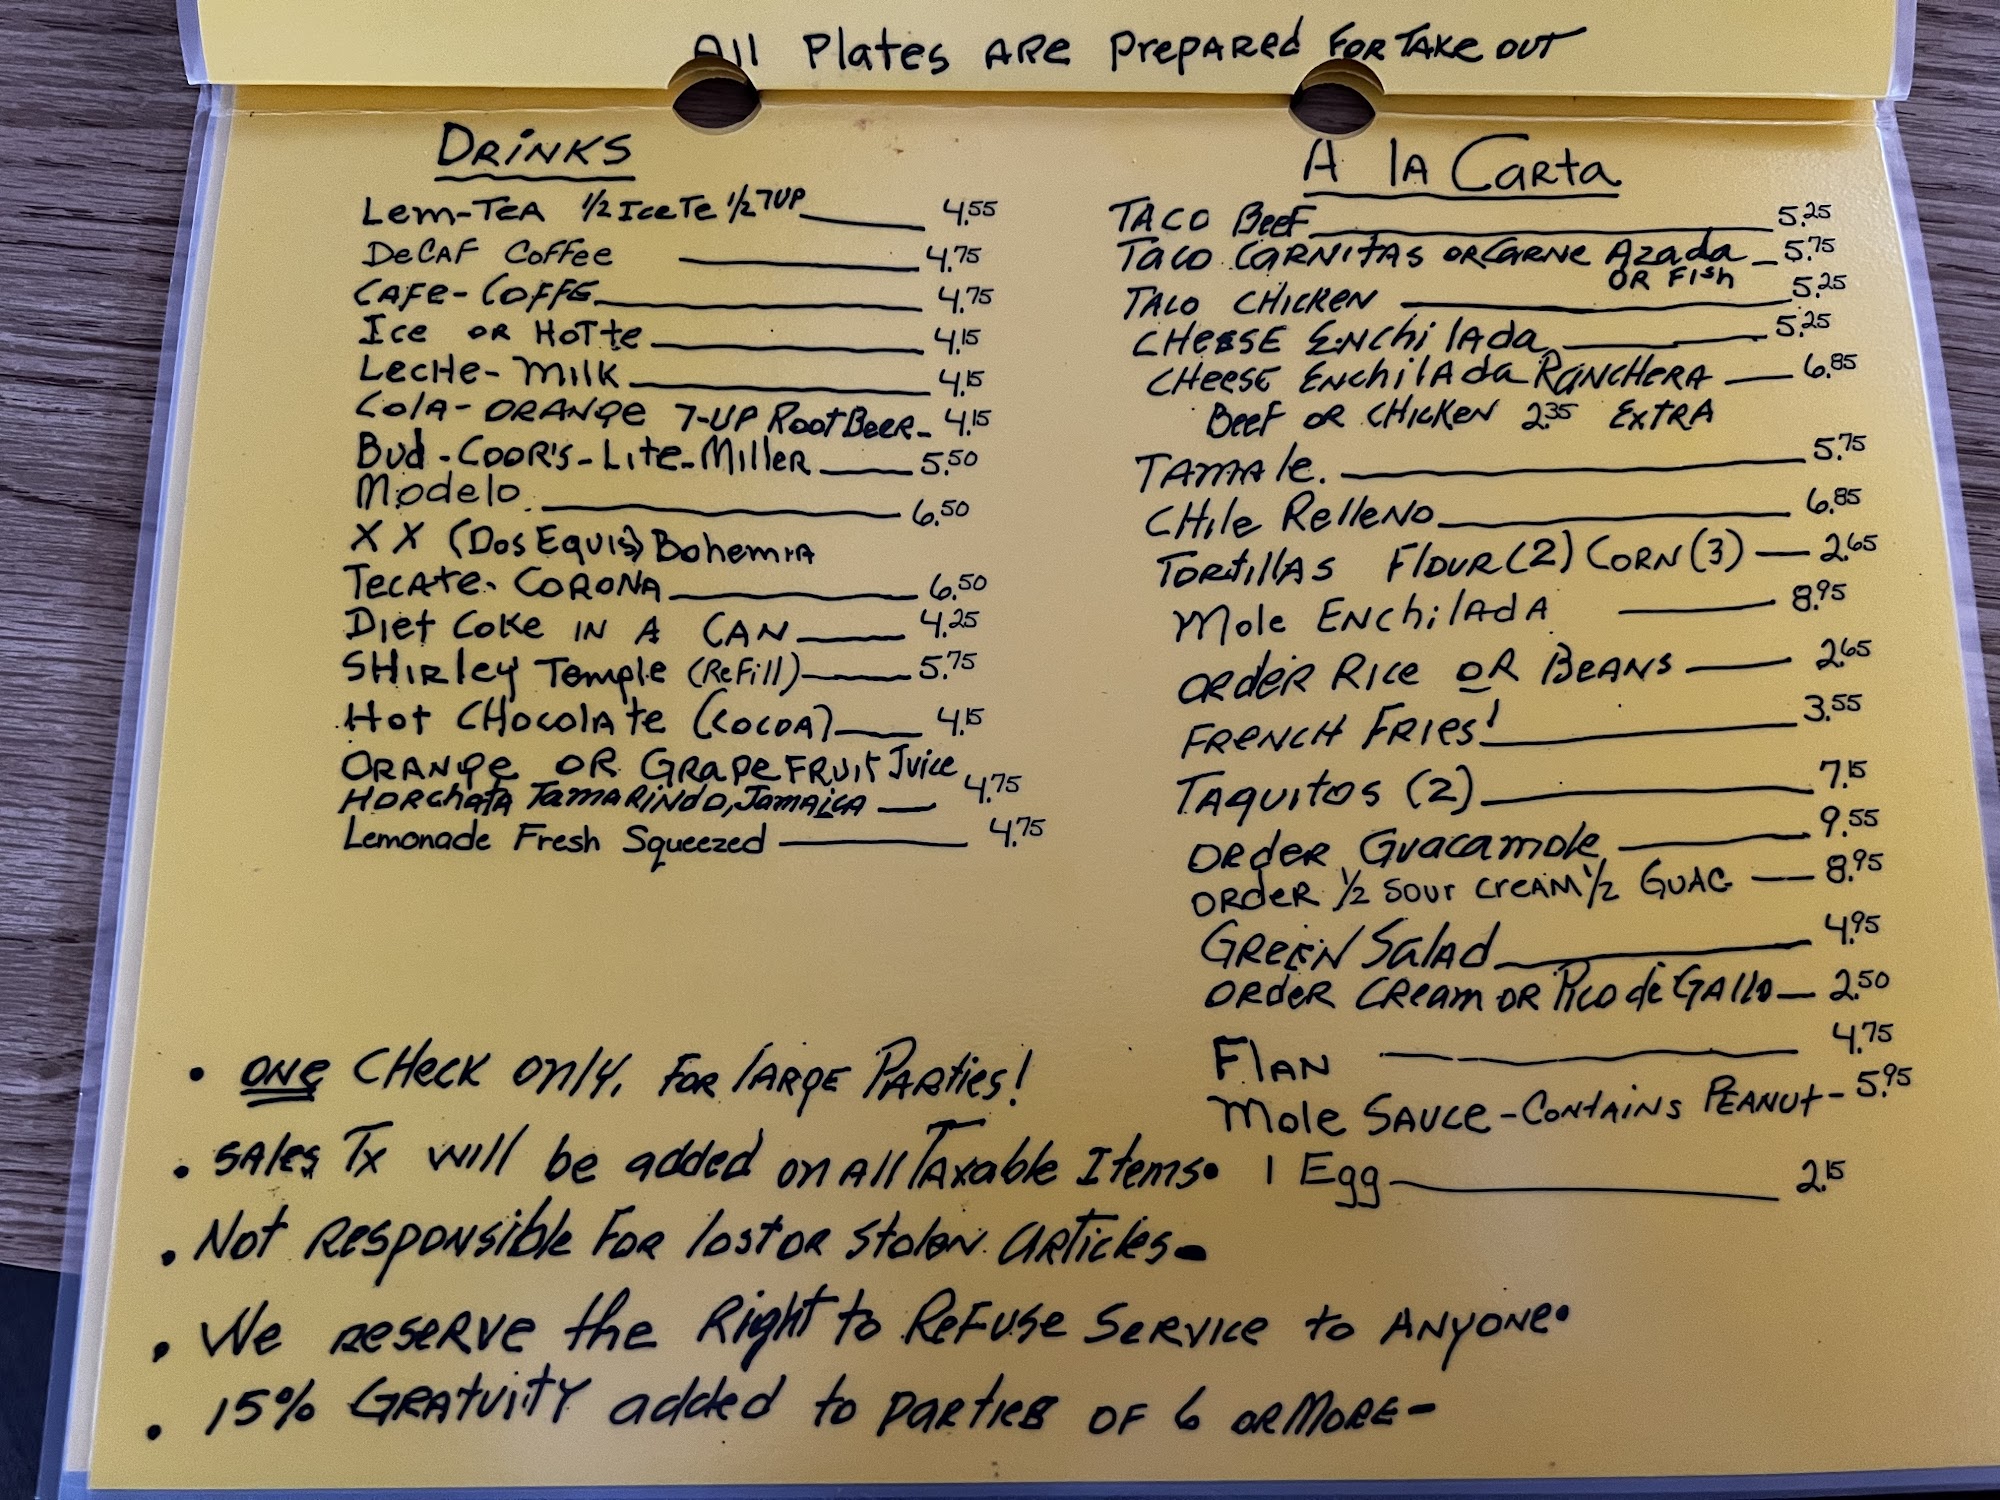 All Plates ARe PrepARed FOR TAKe OUT
DRiNKS
Lem-TeA 1/2 Ice Te 1/2 7UP 4.55
DeCAF Coffee 4.75
CAFe-COFFE 4.75
Ice OR HoTTe 4.15
LecHe-Milk 4.15
Cola-ORANge 7-UP RootBeeR 4.15
Bud-COOR'S-Lite-MilleR 5.50
Modelo 6.50
XX (Dos Equis) Bohemia
TecATe-CORONA 6.50
Diet Coke IN A CAN 4.25
SHIRley Temple (ReFill) 5.75
Hot CHocolAte (COCOA) 4.15
ORANge OR GRApeFRUIT Juice
HORchata TamaRiNdo, JamaicA 4.75
Lemonade Fresh Squeezed 4.75
A lA CaRta
TACO BeeF 5.25
TACO CARNITAS OR CARNe Azada 5.75
OR Fish
TACO CHICKeN 5.25
CHeESE ENchilAda 5.25
CHeeSE ENchilAda RaNCHeRA 6.85
BeeF OR CHicKeN 2.35 EXTRA
TAMAle. 5.75
CHile RelleNO 6.85
TORtillAS FlOUR (2) CORN (3) 2.65
Mole ENchilAdA 8.95
ORdeR RIce OR BeANS 2.65
FReNCH FRIeS! 3.55
TAquitos (2) 7.15
ORdeR Guacamole 9.55
ORdeR 1/2 SOUR CReAM 1/2 GUAC 8.95
GReeN Salad 4.95
ORdeR CReam OR Pico de GAllo 2.50
FlAN 4.75
Mole SAUCe-CONTAiNS PEANUT- 5.95
1 Egg 2.15
• ONe CHecK Only, FOR lARge PARTies!
• SAles Tx will be added on All TAxable Items.
• Not ResponSible FoR lost OR Stolen Articles-
• We ReseRve the Right to ReFuSe SeRvice to ANyONe.
• 15% GRAtuity added to PARties OF 6 OR MORe-